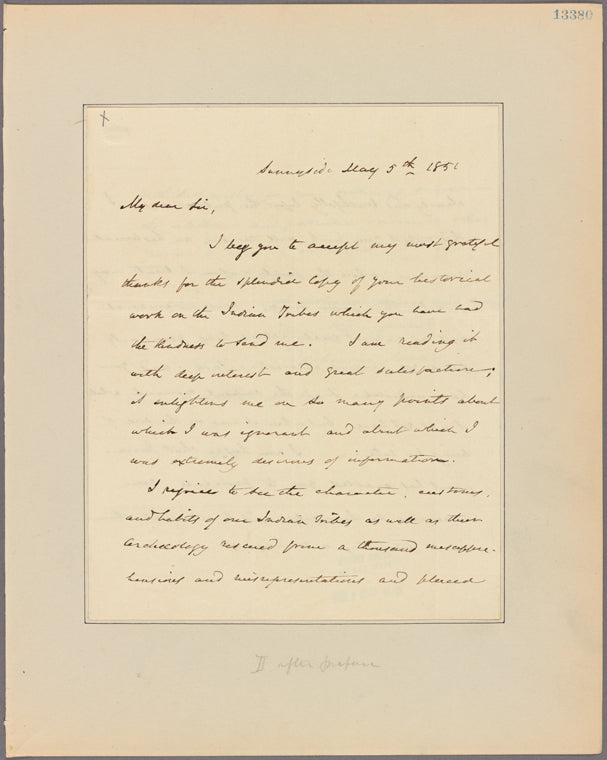 13380
X
Sunnyside May 5th 1851
My dear Sir,
I beg you to accept my most grateful
thanks for the splendid Copy of your historical
work on the Indian Tribes which you have had
the kindness to send me. I am reading it
with deep interest and great satisfaction;
it enlightens me on so many points about
which I was ignorant and about which I
was extremely desirous of information.
I rejoice to see the character, customs,
and habits of our Indian Tribes as well as their
Archaeology rescued from a thousand misappre-
hensions and misrepresentations and placed
II after preface